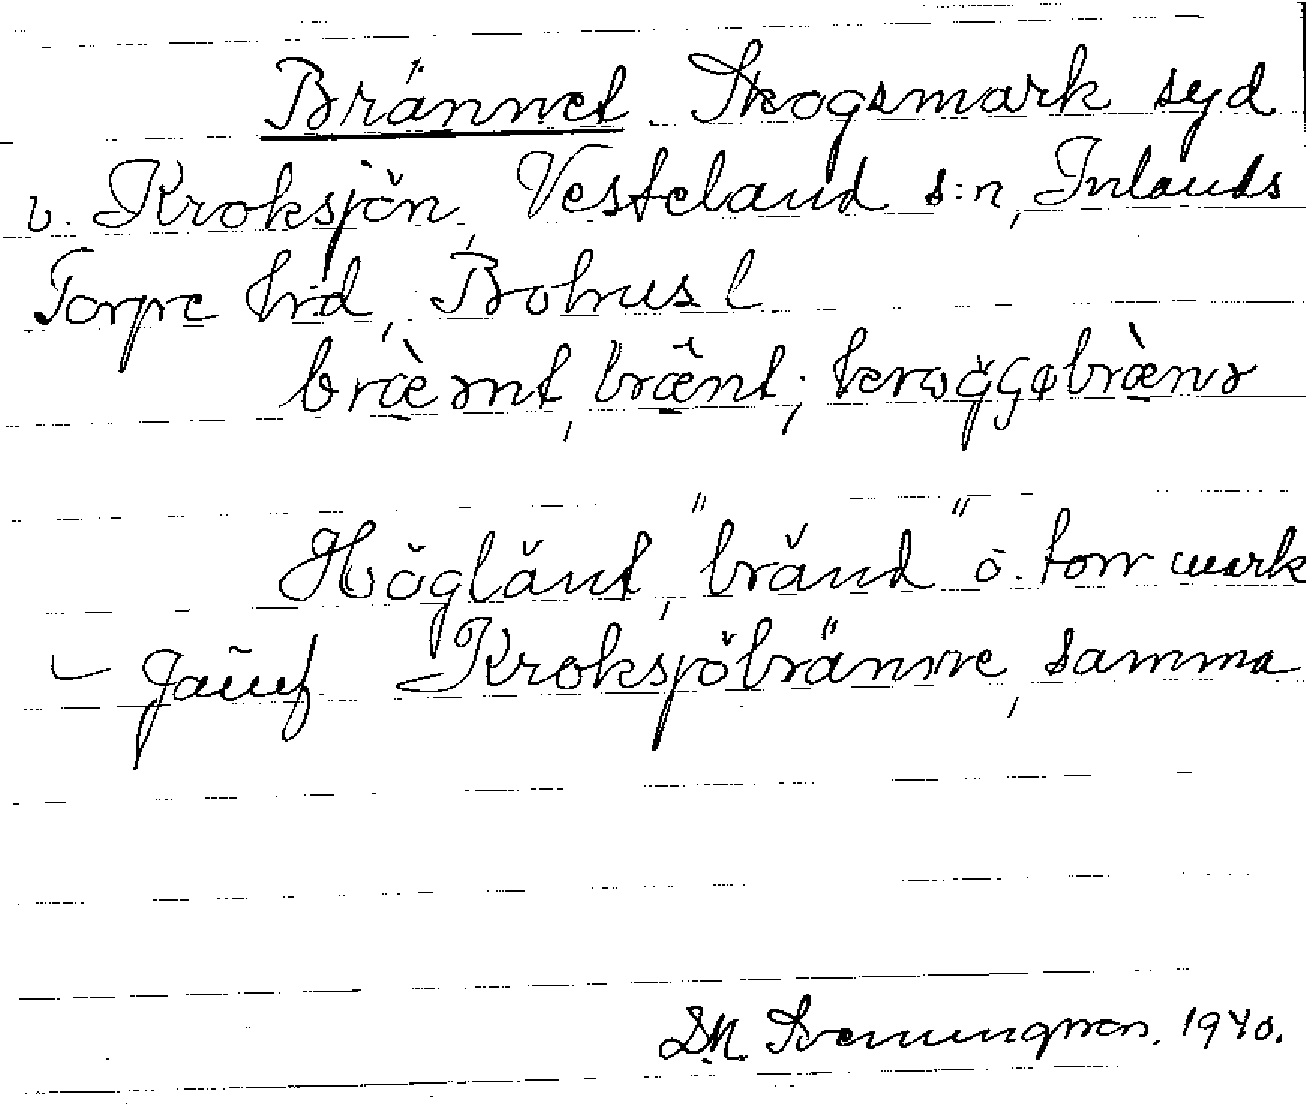 Brännet. Skogsmark syd
v. Kroksjön, Vesteland s:n, Inlands
Torpe hrd, Bohus l.
Högländ, "bränd" o. torr mark
Jämf Kroksjöbränne, samma
D.N. Svenungsson. 1940.